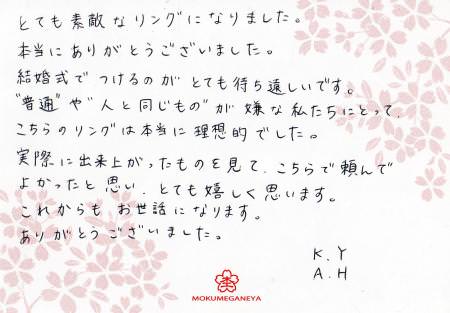 とても素敵なリングになりました。
本当にありがとうございました。
結婚式でつけるのがとても待ち遠しいです。
"普通"や"人と同じもの"が嫌な私たちにとって、
こちらのリングは本当に理想的でした。
実際に出来上がったものを見て、こちらで頼んで
よかったと思い、とても嬉しく思います。
これからもお世話になります。
ありがとうございました。
K.Y
A.H
MOKUMEGANEYA